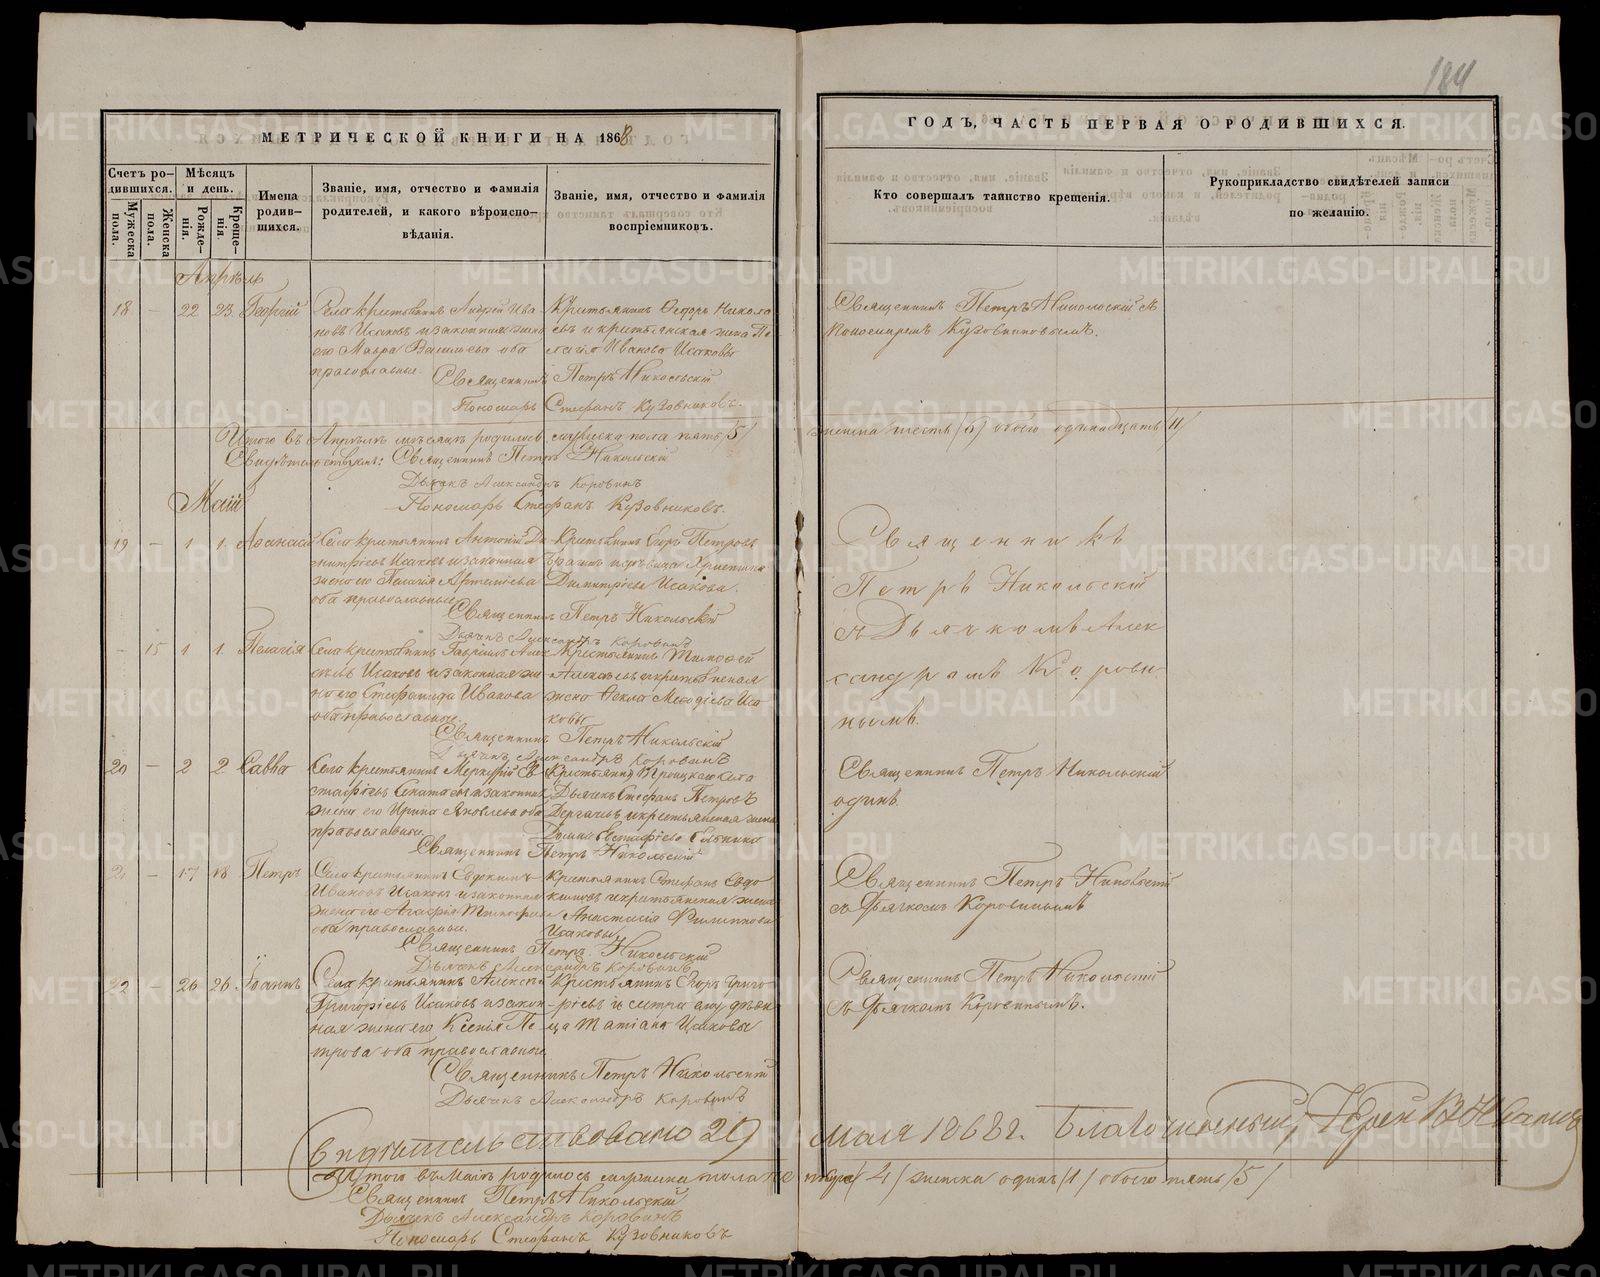 184
МЕТРИЧЕСКОЙ КНИГИ НА 1868
ГОДЪ, ЧАСТЬ ПЕРВАЯ О РОДИВШИХСЯ.
Счетъ ро-
дившихся.
Мужеска пола.
Женска пола.
Мѣсяцъ и день.
Рожде-нія.
Креще-нія.
Имена родив-шихся.
Званіе, имя, отчество и фамилія
родителей, и какого вѣроиспо-
вѣданія.
Званіе, имя, отчество и фамилія
воспріемниковъ.
Кто совершалъ таинство крещенія.
Рукоприкладство свидѣтелей записи
по желанію.
Апрѣль
18 – 22 23 Георгій
Села крестьянинъ Андрей Ива
новъ Исаковъ и законная жена
его Мавра Васильева оба
православные.
Крестьянинъ Ѳедоръ Никола
евъ и крестьянская жена Пе
лагія Иванова Исаковы
Священникъ Петръ Никольскій
Пономарь Стефанъ Кузовниковъ.
Священникъ Петръ Никольскій съ
Пономаремъ Кузовниковымъ.
Итого въ Апрѣлѣ мѣсяцѣ родилось мужеска пола пять /5/
женска шесть /6/ обоего одинадцать /11/
Свидѣтельствуемъ: Священникъ Петръ Никольскій
Дьячекъ Александръ Коровинъ
Пономарь Стефанъ Кузовниковъ.
Маій
19 – 1 1. Аѳанасій
Села крестьянинъ Антоній Ди
митріевъ Исаковъ и законная
жена его Пелагія Артемьева
оба православные
Крестьянинъ Петровъ
и дѣвица Христина
Димитріева Исакова.
Священникъ Петръ Никольскій
Дьячекъ Александръ Коровинъ
Священникъ
Петръ Никольскій
съ Дьячкомъ Алек
сандромъ Корови-
нымъ.
– 15 1 1. Пелагія
Села крестьянинъ Гавріилъ Алек
сѣевъ Исаковъ и законная же
на его Стефанида Иванова
оба православные.
Крестьянинъ Тимоѳей
Алексѣевъ и крестьянская
жена Ѳекла Меѳодіева Иса
ковы
Священникъ Петръ Никольскій
Дьячекъ Александръ Коровинъ
20 – 2 2 Савва
Села крестьянинъ Меркурій Ев
стафіевъ и законная
жена его Ирина Яковлева оба
православные.
Крестьянинъ Троицкаго села
Дьячекъ Стефанъ Петровъ
Дергачевъ и крестьянская жена
Домна Евстафіева
Священникъ Петръ Никольскій
Священникъ Петръ Никольскій
одинъ.
21 – 17 18 Петръ
Села крестьянинъ Евдокимъ
Ивановъ Исаковъ и законная
жена его Агафія Тимофеева
оба православные.
Крестьянинъ Стефанъ Евдо
кимовъ и крестьянская жена
Анастасія Филиппова
Исаковы
Священникъ Петръ Никольскій
Дьячекъ Александръ Коровинъ
Священникъ Петръ Никольскій
съ Дьячкомъ Коровинымъ
22 – 26 26 Іоаннъ
Села крестьянинъ Алексѣй
Григорьевъ Исаковъ и закон-
ная жена его Ксенія Пе-
трова оба православные
Крестьянинъ Егоръ Григо-
рьевъ и сестра ему дѣви-
ца Татіана Исаковы
Священникъ Петръ Никольскій
Дьячекъ Александръ Коровинъ
Священникъ Петръ Никольскій
съ Дьячкомъ Коровинымъ.
Свидѣтельствовано 29 Мая 1868 г. Благочинный, Іерей В Ивановъ
Итого въ Маіѣ родилось мужеска пола четыре /4/ женска одинъ /1/ обоего пять /5/
Священникъ Петръ Никольскій
Дьячекъ Александръ Коровинъ
Пономарь Стефанъ Кузовниковъ
METRIKI.GASO-URAL.RU